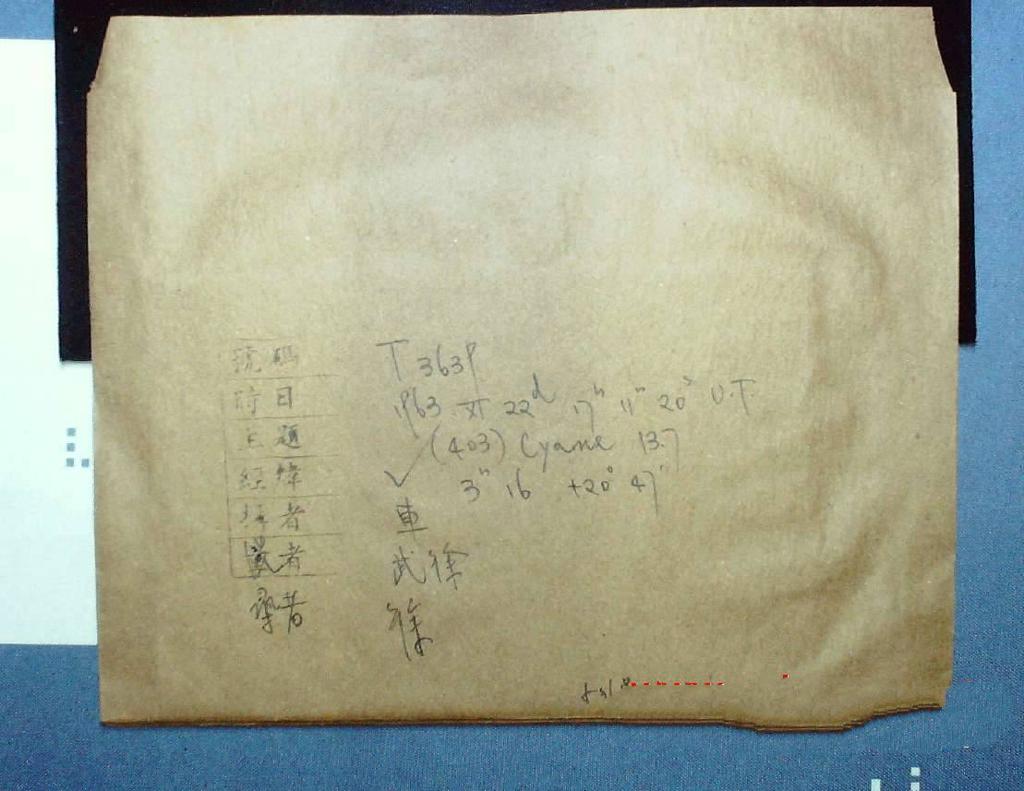 號碼 T 3639
時日 1963 XI 22d 17h 11m 20s U.T
主題 (403) Cyane 13.7
經緯 ✓ 3h 16 +20° 47'
者 車
者 武徐
者 徐